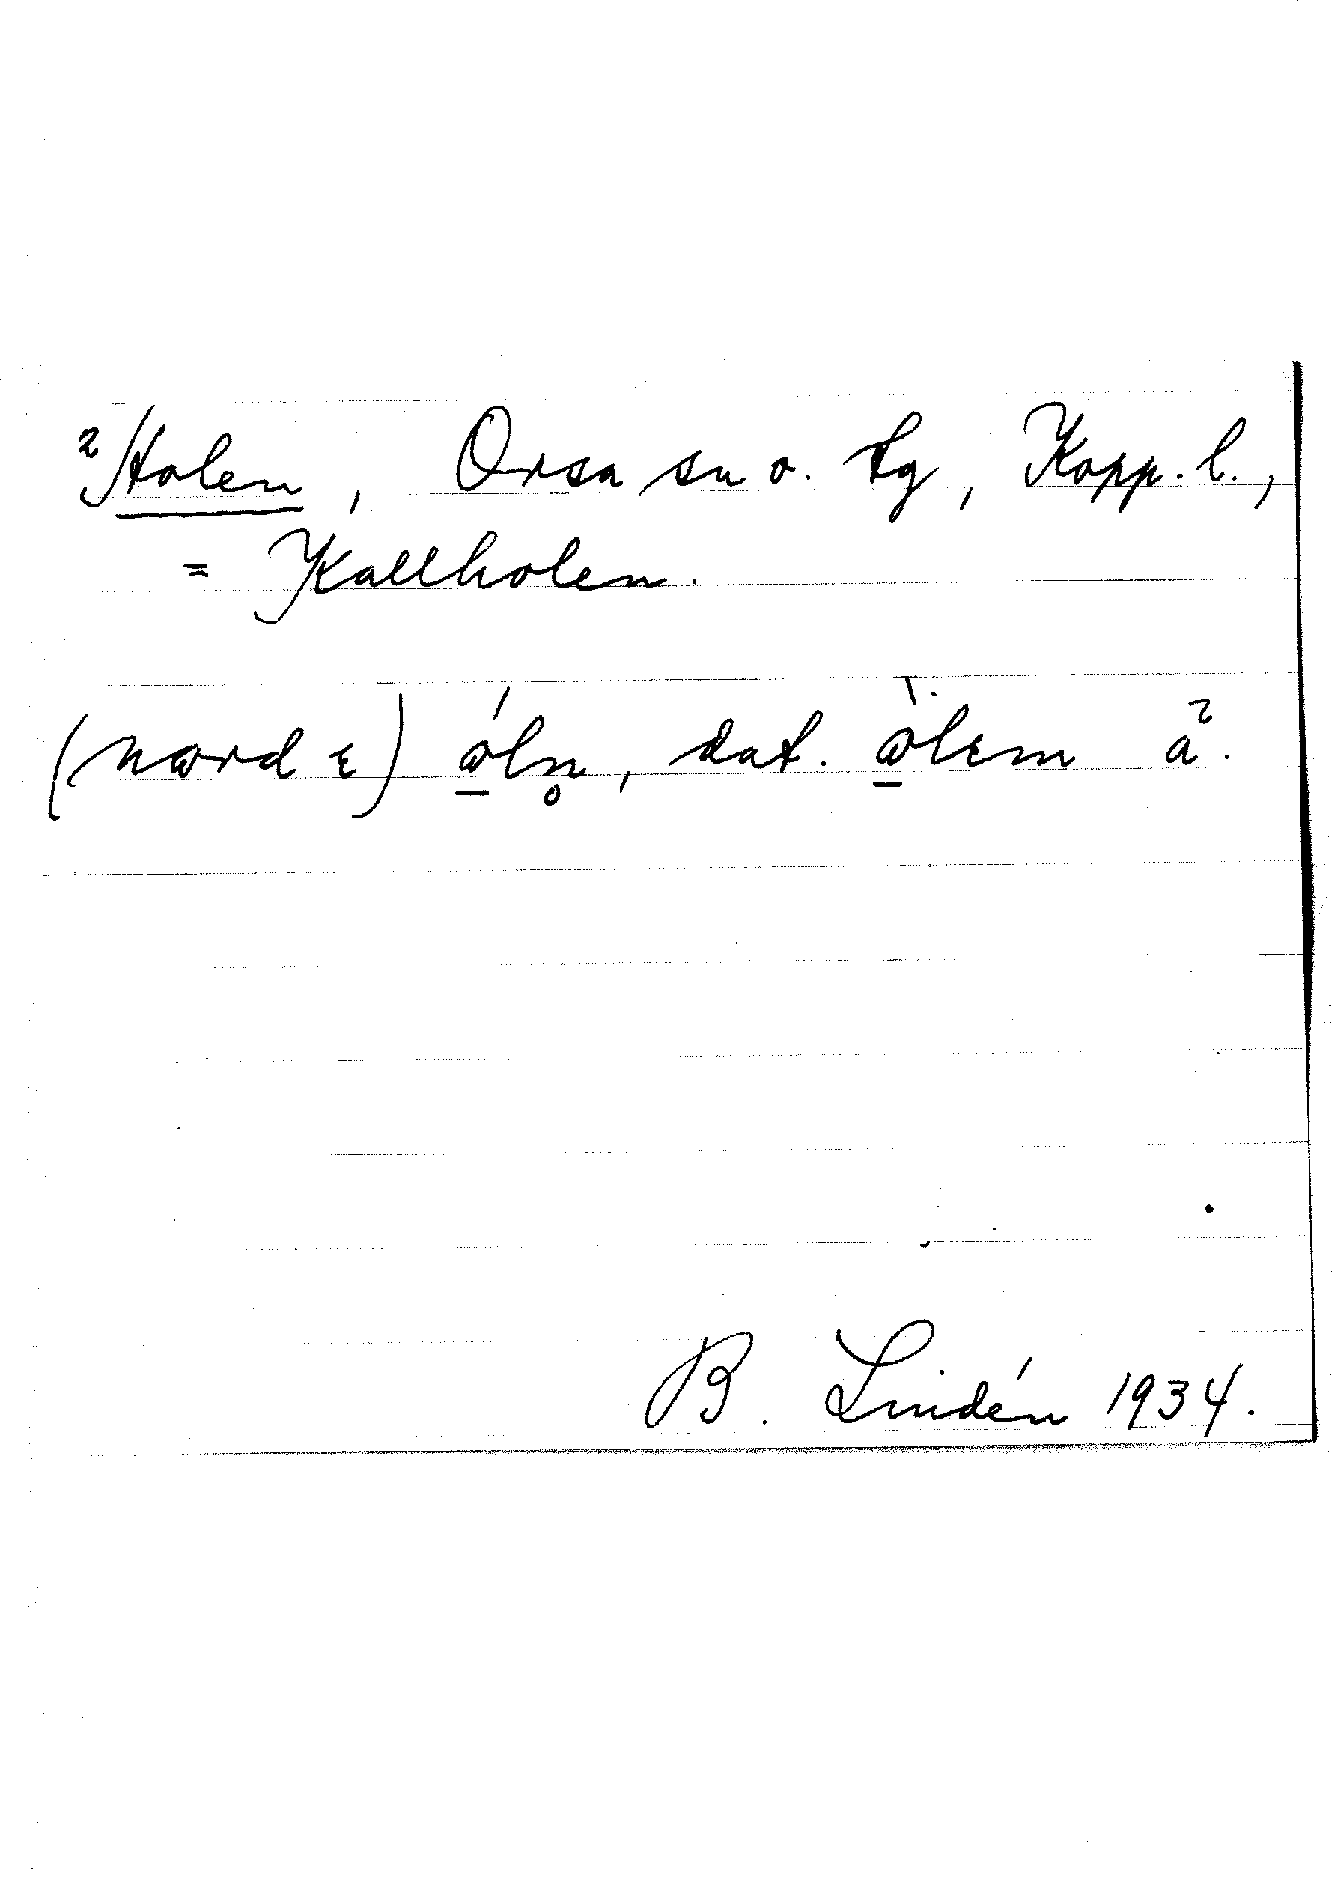 ²Holen, Orsa sn o. tg, Kopp. l.,
= Kallholen.
(nærd ɛ) ǿ̱ln̥, dat. ø̱̀lɛm a².
B. Lindén 1934.